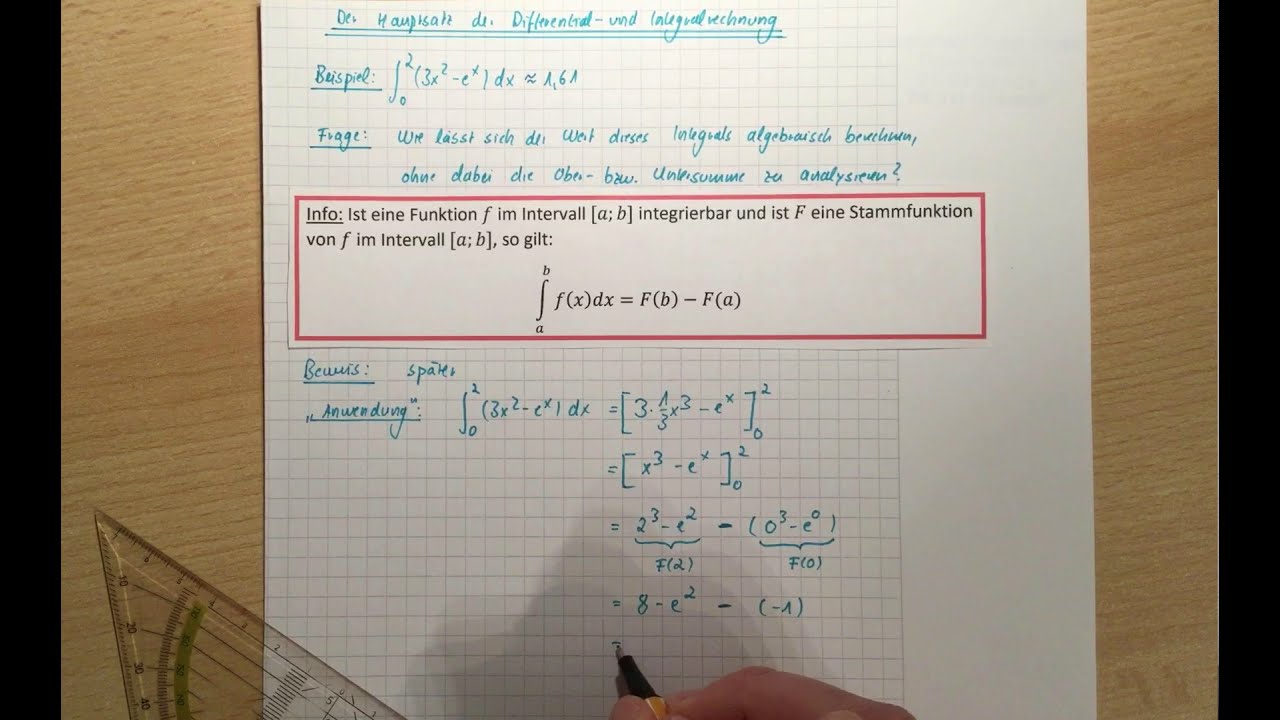 Der Hauptsatz der Differential- und Integralrechnung
Beispiel: ∫₀² (3x² - eˣ) dx ≈ 1,61
Frage: Wie lässt sich der Wert dieses Integrals algebraisch berechnen,
ohne dabei die Ober- bzw. Untersumme zu analysieren?
Info: Ist eine Funktion f im Intervall [a; b] integrierbar und ist F eine Stammfunktion
von f im Intervall [a; b], so gilt:
∫ₐᵇ f(x)dx = F(b) − F(a)
Beweis: später
„Anwendung": ∫₀² (3x² - eˣ) dx = [3·⅓x³ - eˣ]₀²
= [x³ - eˣ]₀²
= 2³ - e² - (0³ - e⁰)
F(2) F(0)
= 8 - e² - (-1)
=